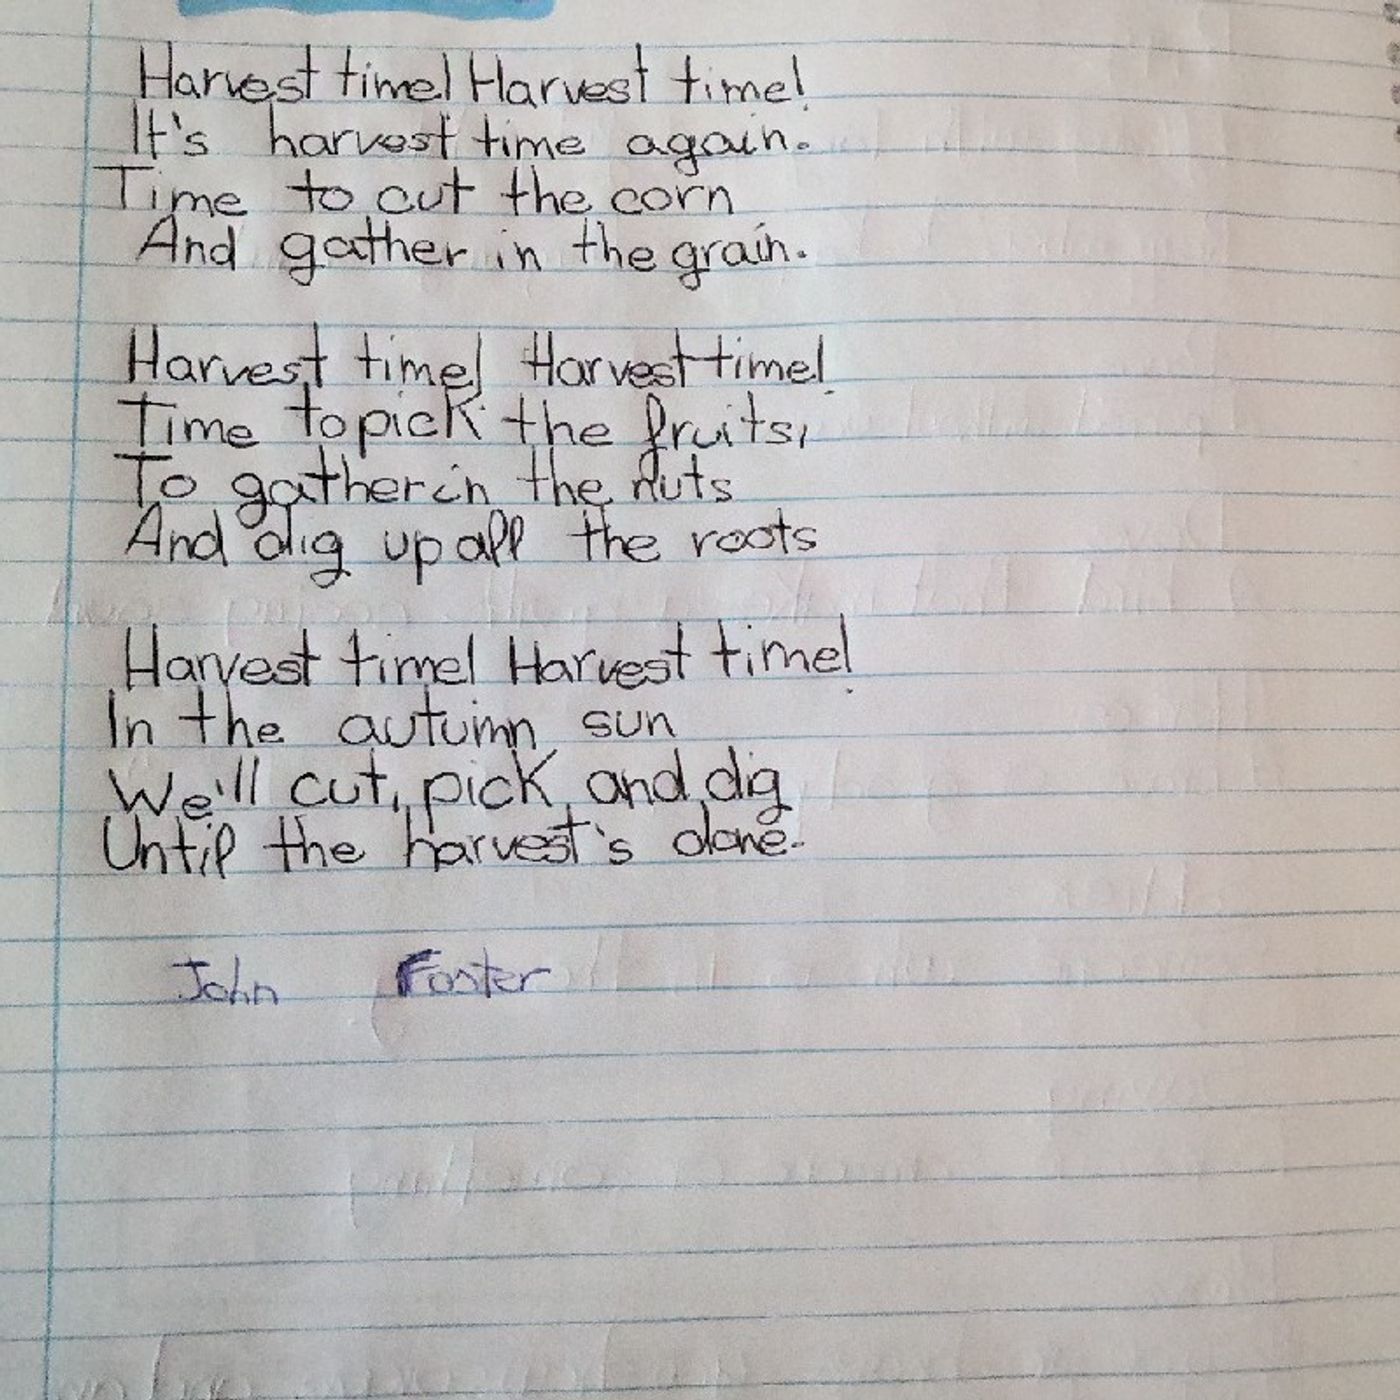 Harvest time! Harvest time!
It's harvest time again.
Time to cut the corn
And gather in the grain.
Harvest time! Harvest time!
Time to pick the fruits,
To gather in the nuts
And dig up all the roots
Harvest time! Harvest time!
In the autumn sun
We'll cut, pick, and dig
Until the harvest's done.
John Foster